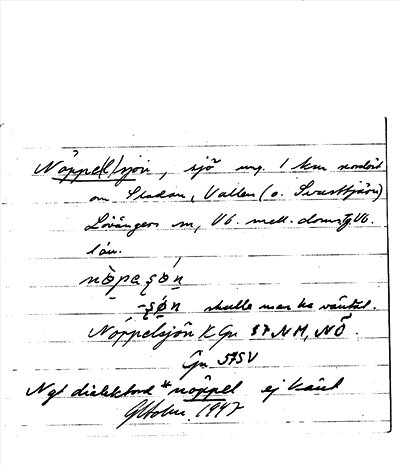 Nöppe(l)sjön, sjö ung. 1 km nordöst
om Slakan, Vallen (o. Svarttjärn)
Lövångers sn, Vb. mell. doms. Vb.
län.
nòpeşøn
-şøn skulle man ha väntat.
Nöppelsjön K Gr 57 NM, NÖ.
Gr 57SV
Ngt dialektord *nöppel ej känt
GHolm. 1947